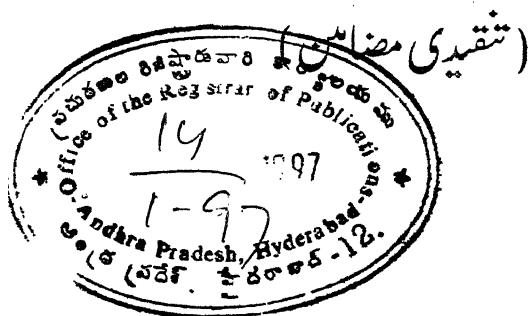 (تنقیدی مضامین)
ప్రచురణల రిజిష్ట్రారువారి కార్యాలయము
Office of the Registrar of Publications
14
1-97
1997
Andhra Pradesh, Hyderabad-12.
ఆంధ్ర ప్రదేశ్. హైదరాబాద్-12.